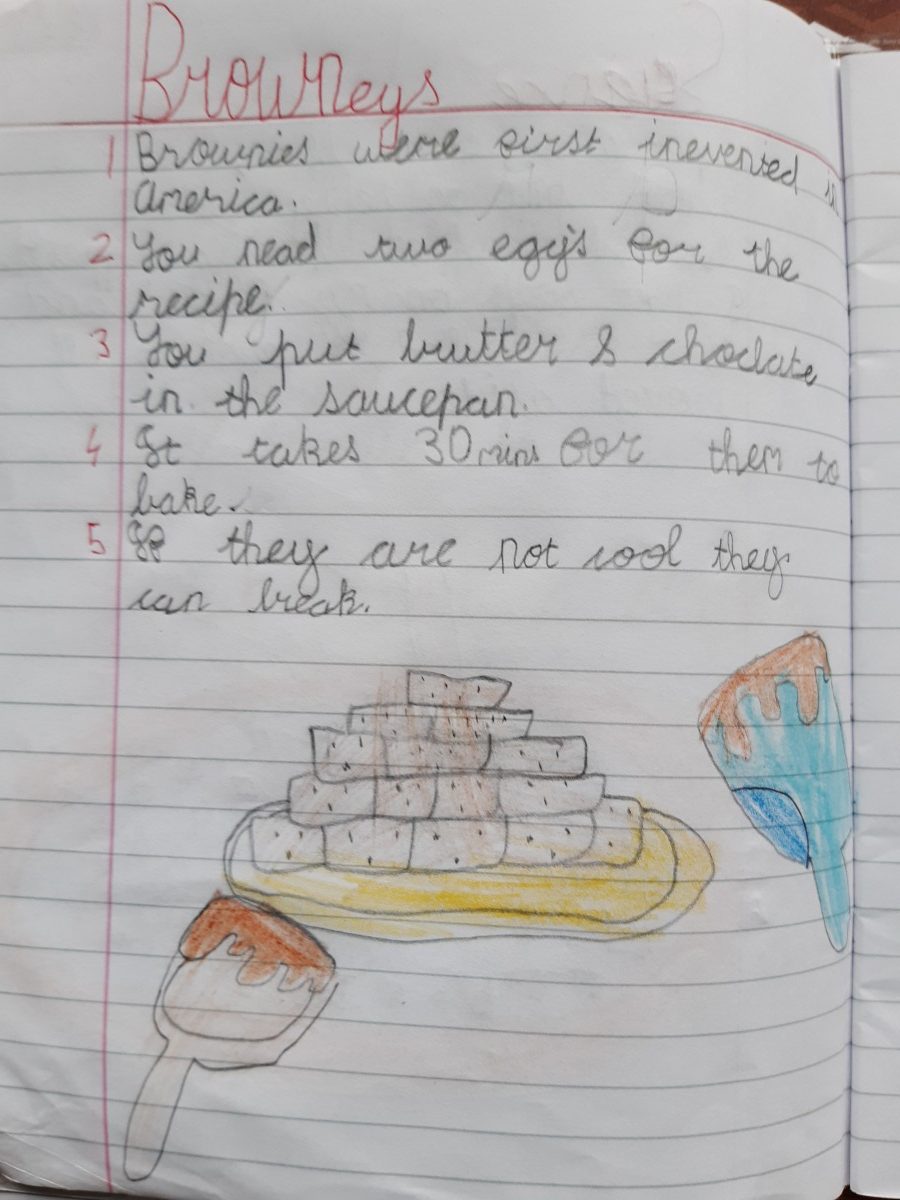 Browneys
1 Brownies were first inevented in
America.
2 You nead two eggs for the
recipe.
3 You put butter & choclate
in the saucepan.
4 It takes 30 mins for them to
bake.
5 If they are not cool they
can break.